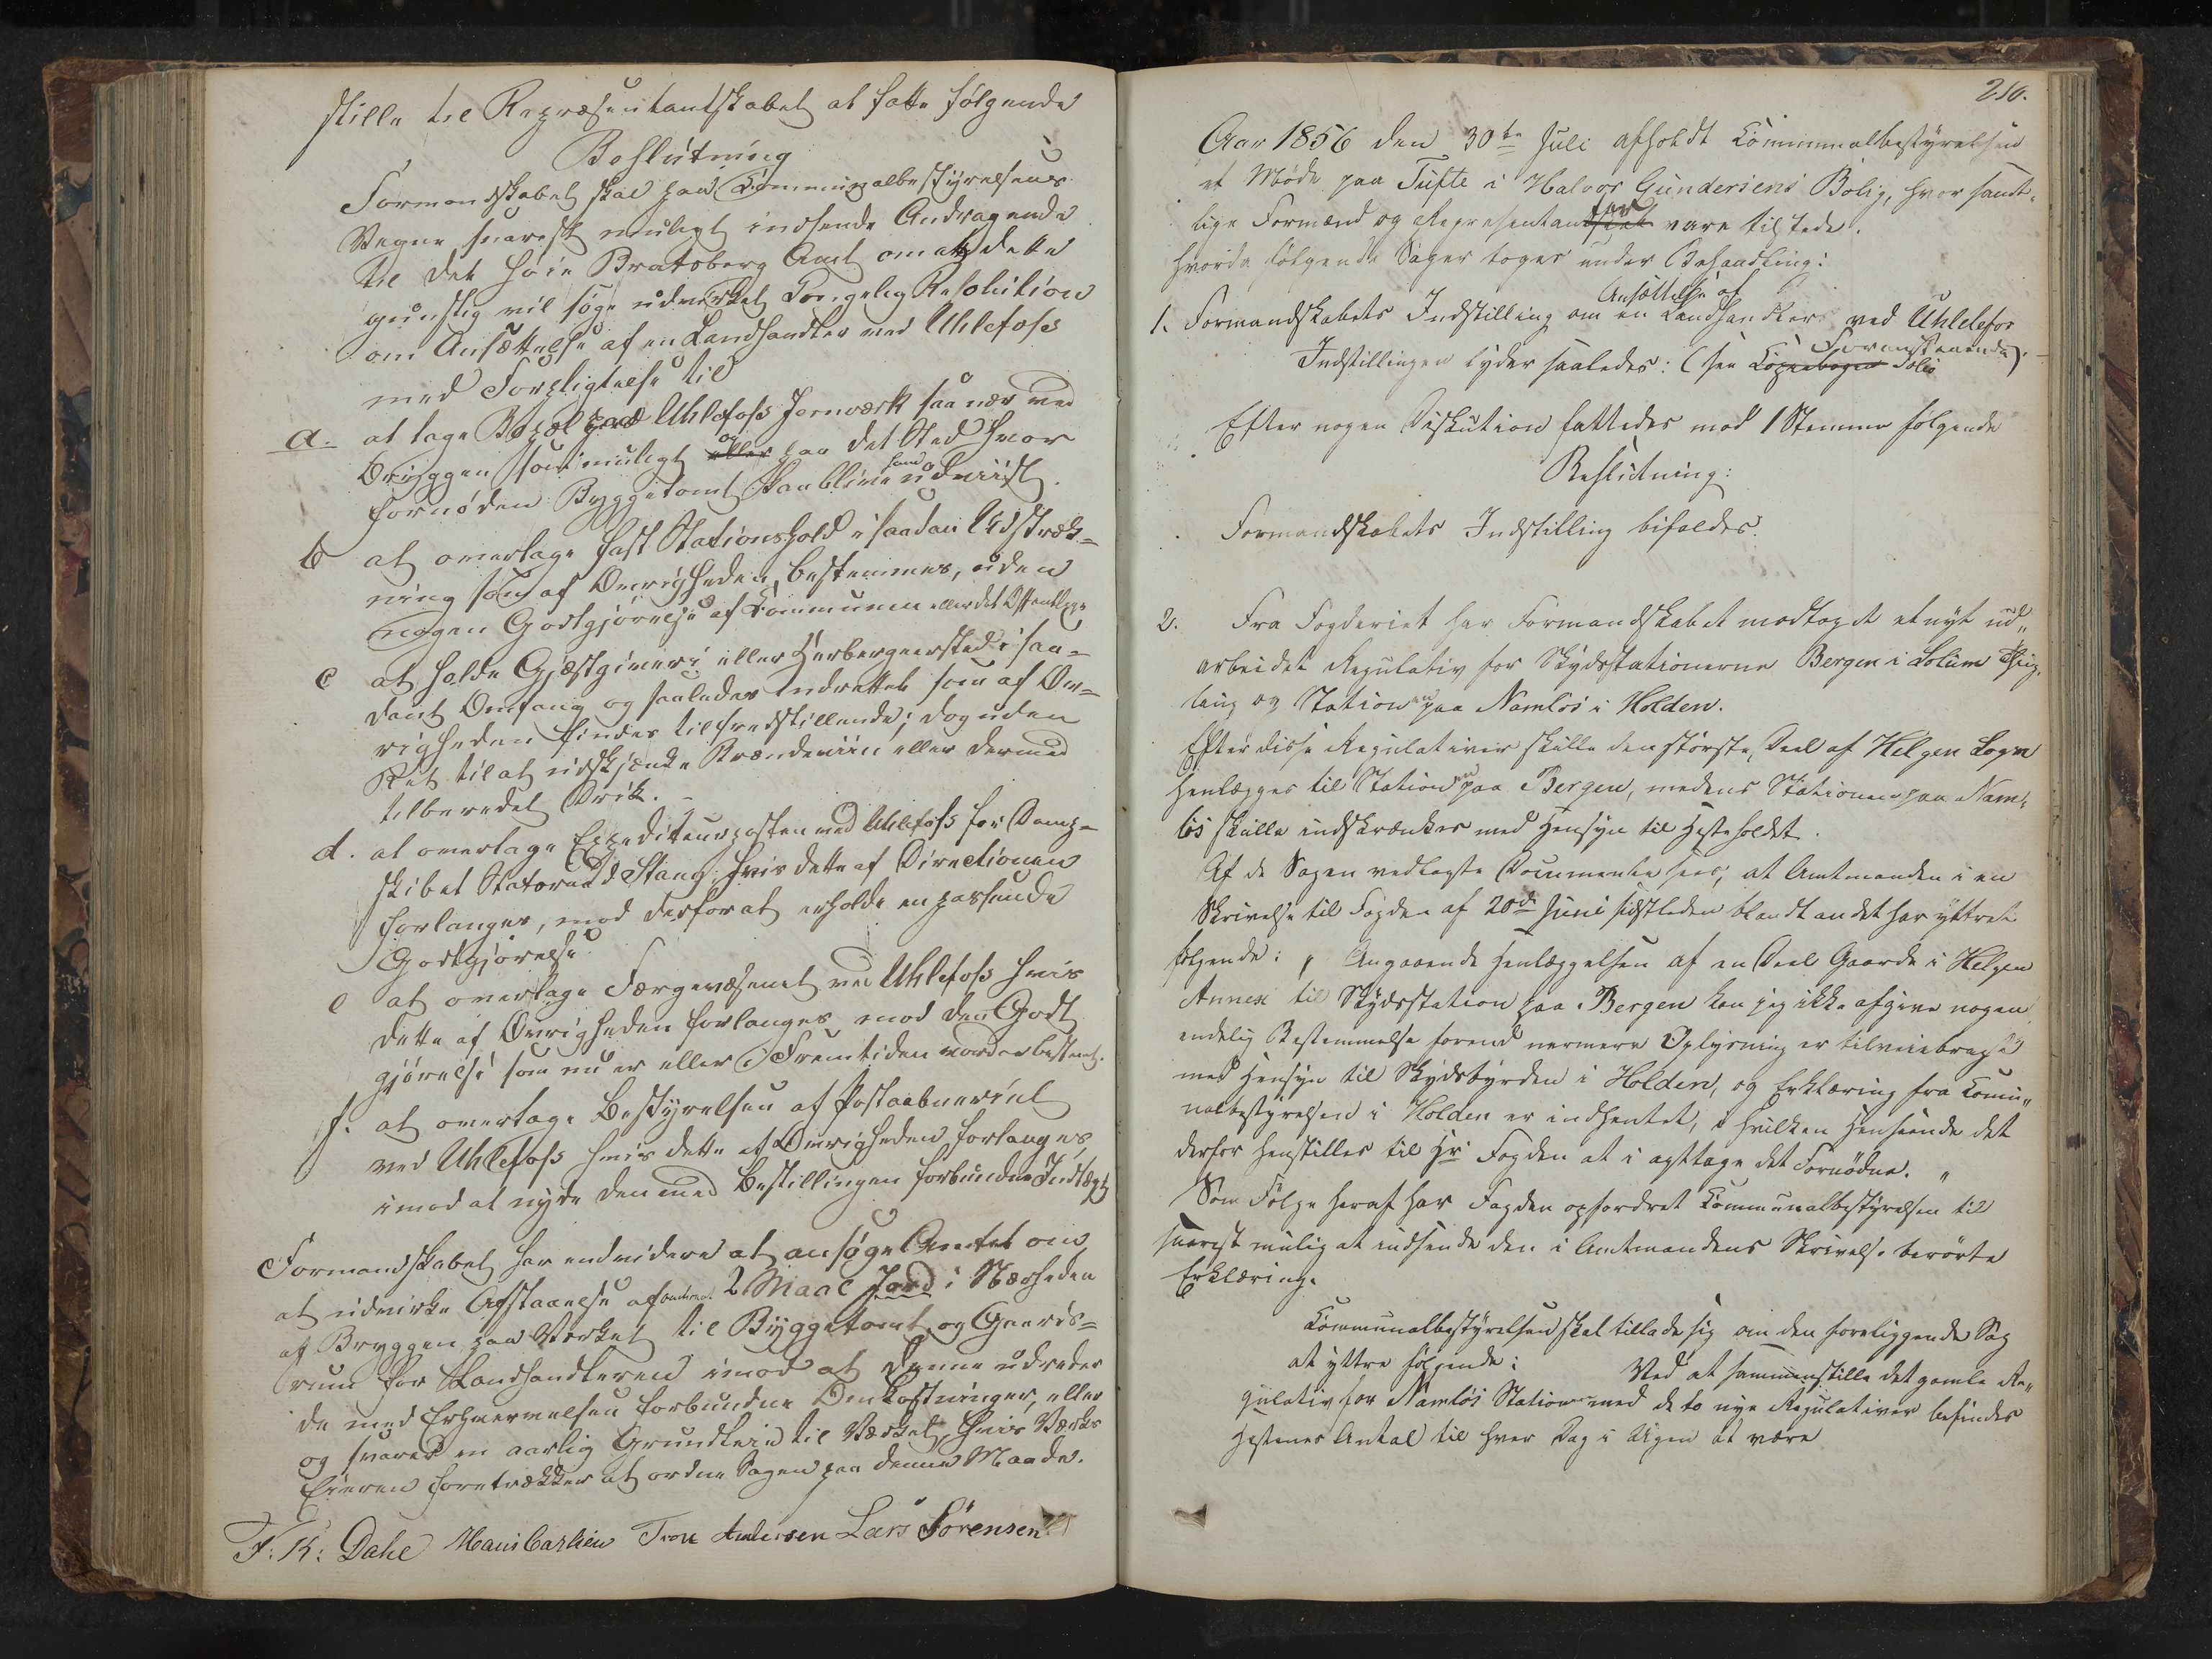 stille til Repræsentantskabet at fatte følgende
Beslutning
Formandskabet skal paa Communalbestyrelsens
Vegne snarest muligt indsende Andragende
til det høie Bratsberg Amt om at dette
gunstig vil søge udvirket Kongelig Resolution
om Ansættelse af en Landhandler ved Uhlefoss
med Forpligtelse til
a. at tage Bopæl paa Uhlefoss Jernværk saa nær ved
Bryggen som muligt eller og paa det Sted hvor
fornøden Byggetomt kan blive ham udviist.
b at overtage fast Stationshold i saadan Udstræk=
ning som af Øvrigheden bestemmes, uden
nogen Godtgjørelse af Kommunen eller det Offentlige
c at holde Gjæstgiveri eller Herbergeersted i saa=
dant Omfang og saaledes indrettet som af Øv=
righeden findes tilfredsstillende; dog uden
Ret til at udskjænke Brændeviin eller dermed
tilberedet Drik. -
d. at overtage Expediteurposten ved Uhlefoss for Damp=
skibet Statsraad Stang, hvis dette af Directionen
forlanges, mod derfor at erholde en passende
Godtgjørelse
e at overtage Færgevæsenet ved Uhlefoss hvis
dette af Øvrigheden forlanges mod den Godt
gjørelse som nu er eller i Fremtiden vorder bestemt.
f. at overtage Bestyrelsen af Postaabneriet
ved Uhlefoss hvis dette af Øvrigheden forlanges,
imod at nyde den med Bestillingen forbundne Indtægt
Formandskabet har endvidere at ansøge Amtet om
at udvirke Afstaaelse af omtrent 2 Maal Jord i Nærheden
af Bryggen paa Værket til Byggetomt og Gaards=
rum for Landhandleren imod at denne udreder
de med Erhvervelsen forbundne Omkostninger, eller
og svarer en aarlig Grundleie til Værket, hvis Værks
Eieren foretrækker at ordne Sagen paa denne Maade.
F: K: Dahl Hans Cashien Tron Andersen Lars Sørensen
210.
Aar 1856 den 30te Juli afholdt Communalbestyrelsen
et Møde paa Tufte i Halvor Gundersens Bolig, hvor samt=
lige Formænd og Representanter vare tilstede.
Hvorda følgende Sager toges under Behandling:
1. Formandskabets Indstilling om Ansættelse af en Landhandler ved Uhlefos
Indstillingen lyder saaledes: (see Kopiebogen Folio Foranstaaende).
Efter nogen Diskution fattedes mod 1 Stemme følgende
Beslutning:
Formandskabets Indstilling bifaldes.
2. Fra Fogderiet har Formandskabet modtaget et nyt ud„
arbeidet Regulativ for Skydsstationerne Bergen i Solum Thing„
laug og Stationen paa Namløs i Holden.
Efter disse Regulativer skulle den største Deel af Helgen Sogn
henlægges til Stationen paa Bergen, medens Stationen paa Nam„
løs skulle indskrænkes med Hensyn til Hesteholdet.
Af de Sagen vedlagte Documenter sees, at Amtmanden i en
Skrivelse til Fogden af 20de Juni sidstleden blandt andet har yttret
følgende: „ Angaaende Henlæggelsen af en Deel Gaarde i Helgen
Annex til Skydsstation paa Bergen kan jeg ikke afgive nogen
endelig Bestemmelse forend nermere Oplysning er tilveiebragt
med Hensyn til Skydsbyrden i Holden, og Erklæring fra Komu„
nalbestyrelsen i Holden er indhentet, i hvilken Henseende det
derfor henstilles til Hr Fogden at i agttage det Fornødne. „
Som Følge heraf har Fogden opfordret Kommunalbestyrelsen til
snarest mulig at indsende den i Amtmandens Skrivelse berørte
Erklæring.
Kommunalbestyrelsen skal tillade sig om den foreliggende Sag
at yttre følgende: Ved at sammenstille det gamle Re„
gulativ for Namløs Station med de to nye Regulativer befindes
Hestenes Antal til hver Dag i Ugen at være